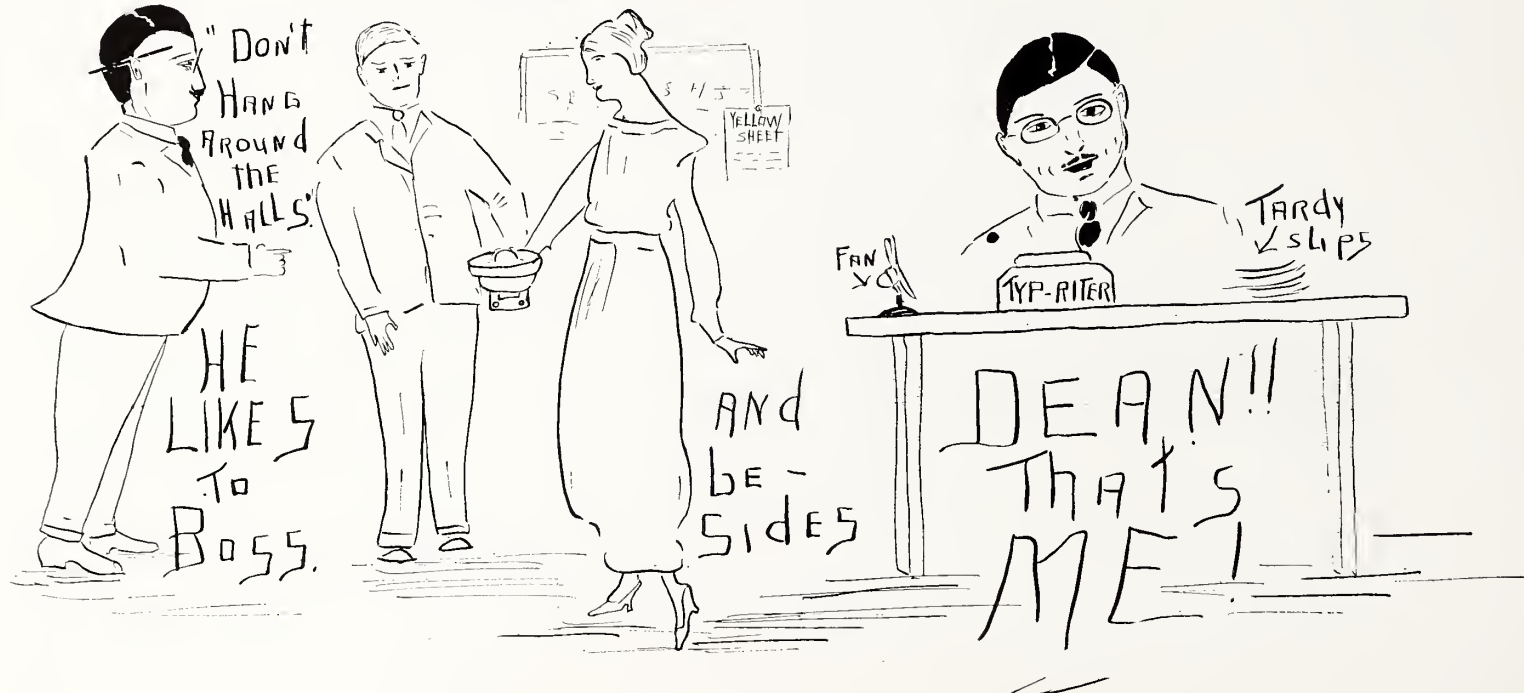 "DON'T
HANG
AROUNd
thE
HALLS."
HE
LIKES
To
BOSS.
YELLOW
SHEET
ANd
bE-
SIdES
FAN
TYP-RITER
TARdy
slips
DEAN!!
ThAt's
ME!